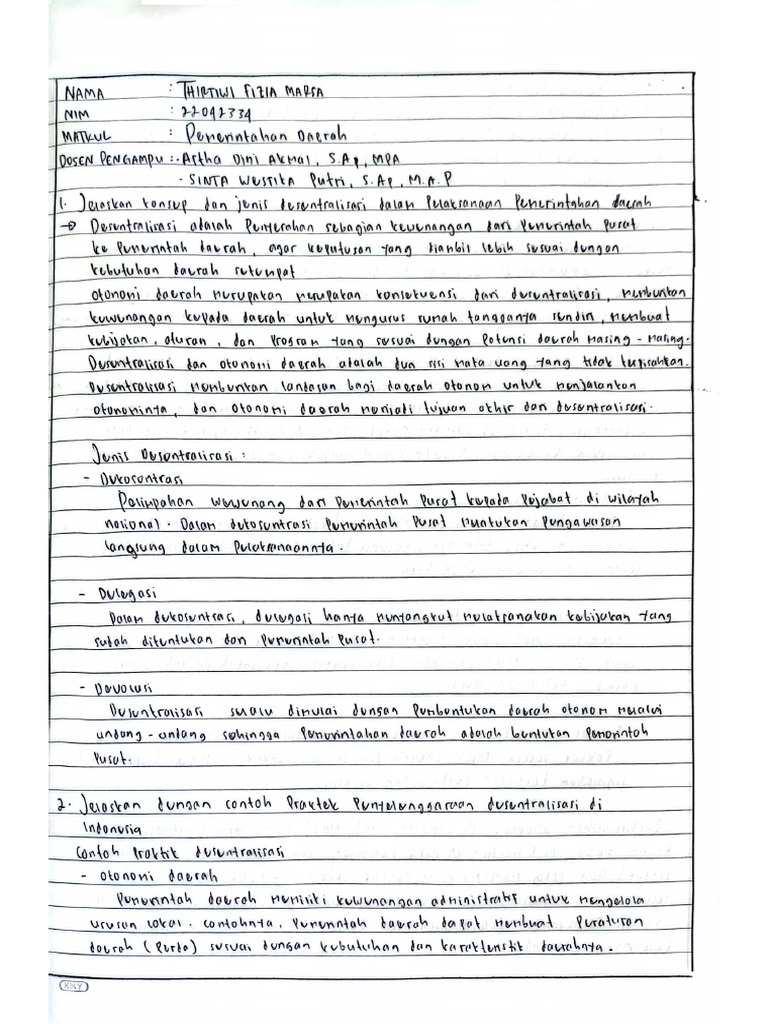 NAMA : THIRTIWI FIZIA MARSA
NIM : 22042334
MATKUL : Pemerintahan Daerah
DOSEN PENGAMPU : - Artha Dini Akmal, S.Ap, MPA
- SINTA Westika Putri, S.AP, M.A.P
1. Jelaskan konsep dan jenis desentralisasi dalam Pelaksanaan Pemerintahan daerah
→ Desentralisasi adalah Penyerahan sebagian kewenangan dari Pemerintah Pusat
ke Pemerintah daerah, agar keputusan yang diambil lebih sesuai dengan
kebutuhan daerah setempat
otonomi daerah merupakan merupakan konsekuensi dari desentralisasi, memberikan
kewenangan kepada daerah untuk mengurus rumah tangganya sendiri, membuat
kebijakan, aturan, dan Program yang sesuai dengan Potensi daerah masing-masing.
Desentralisasi dan otonomi daerah adalah dua sisi mata uang yang tidak terpisahkan.
Desentralisasi memberikan landasan bagi daerah otonom untuk menjalankan
otonominya, dan otonomi daerah menjadi tujuan akhir dari desentralisasi.
Jenis Desentralisasi :
- Dekosentrasi
Pelimpahan wewenang dari Pemerintah Pusat kepada Pejabat di wilayah
nasional. Dalam dekosentrasi Pemerintah Pusat melakukan Pengawasan
langsung dalam Pelaksanaannya.
- Delegasi
Dalam dekosentrasi, delegasi hanya menyangkut melaksanakan kebijakan yang
sudah ditentukan dari Pemerintah Pusat.
- Devolusi
Desentralisasi selalu dimulai dengan Pembentukan daerah otonom melalui
undang-undang sehingga Pemerintahan daerah adalah bentukan Pemerintah
Pusat.
2. Jelaskan dengan contoh Praktek Penyelenggaraan desentralisasi di
Indonesia
Contoh Praktik desentralisasi
- otonomi daerah
Pemerintah daerah memiliki kewenangan administratif untuk mengelola
urusan lokal. contohnya, Pemerintah daerah dapat membuat Peraturan
daerah (Perda) sesuai dengan kebutuhan dan karakteristik daerahnya.
KKY